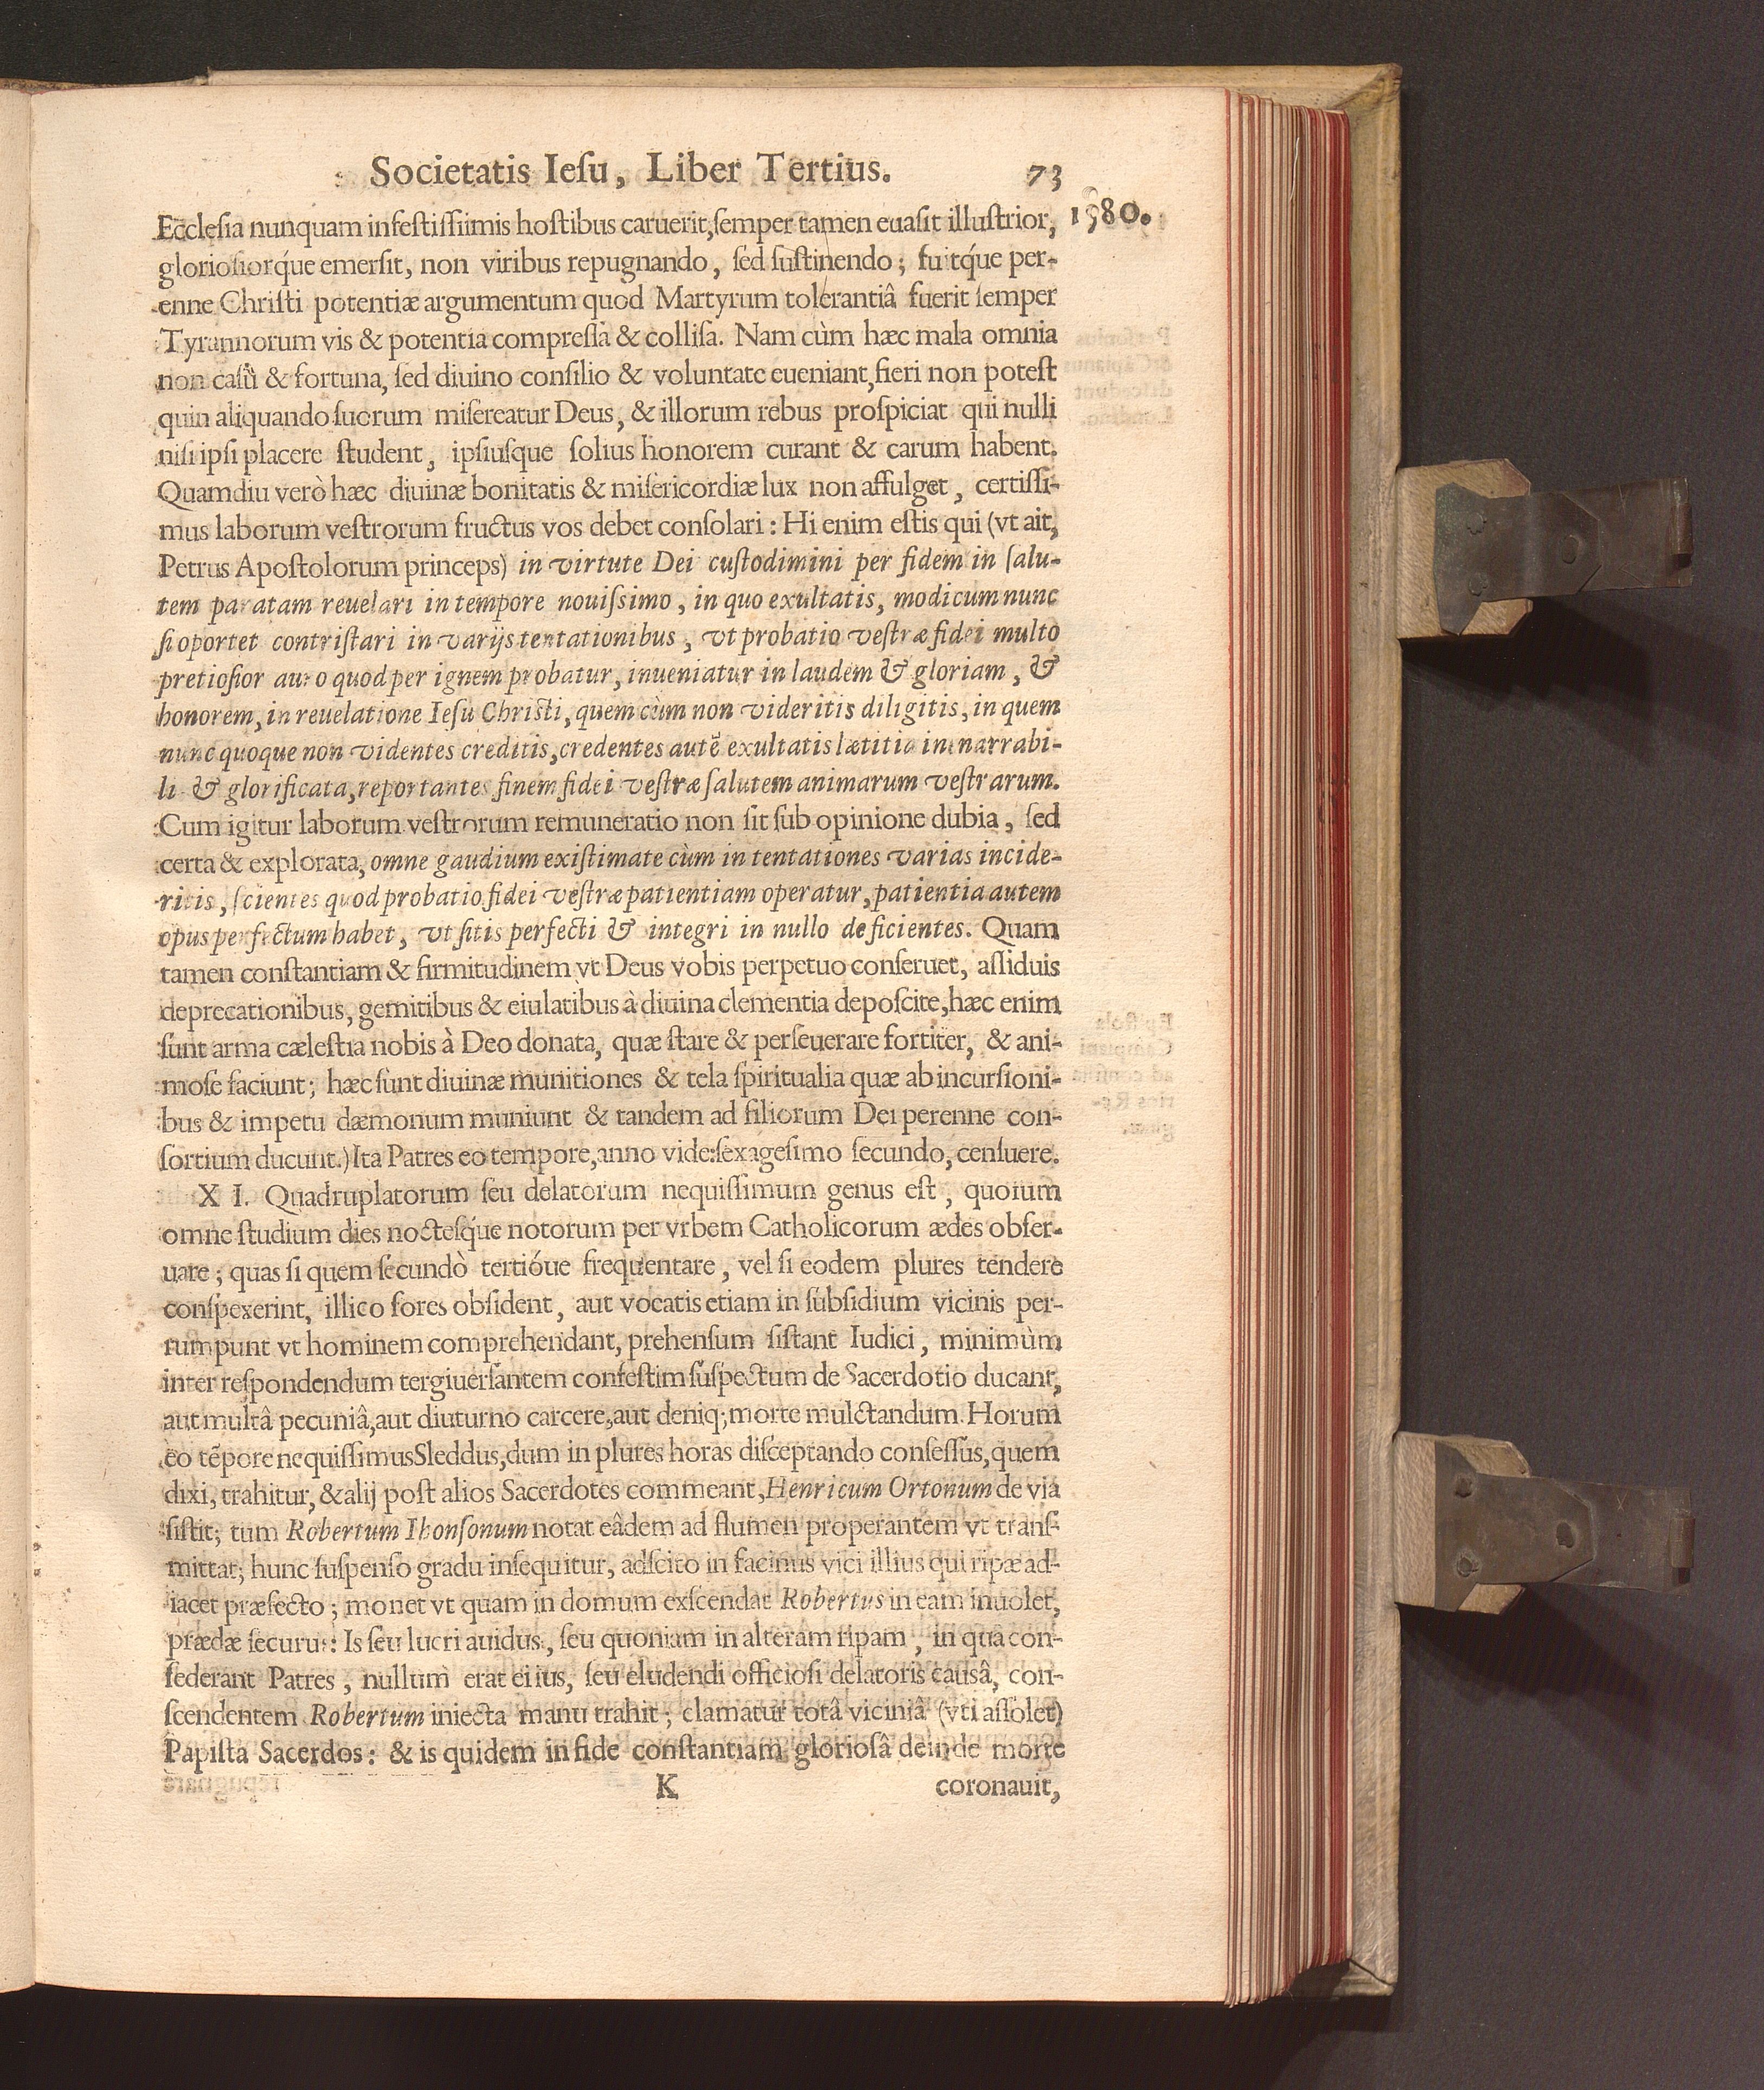 Societatis Ieſu, Liber Tertius. 73
1580.
Eccleſia nunquam infeſtiſſimis hoſtibus caruerit, ſemper tamen euaſit illuſtrior,
glorioſiorq́ue emerſit, non viribus repugnando, ſed ſuſtinendo; fuitq́ue per-
enne Chriſti potentiæ argumentum quod Martyrum tolerantiâ fuerit ſemper
Tyrannorum vis & potentia compreſſa & colliſa. Nam cùm hæc mala omnia
non caſu & fortuna, ſed diuino conſilio & voluntate eueniant, fieri non poteſt
quin aliquando ſuorum miſereatur Deus, & illorum rebus proſpiciat qui nulli
niſi ipſi placere ſtudent, ipſiuſque ſolius honorem curant & carum habent.
Quamdiu verò hæc diuinæ bonitatis & miſericordiæ lux non affulget, certiſſi-
mus laborum veſtrorum fructus vos debet conſolari: Hi enim eſtis qui (vt ait,
Petrus Apoſtolorum princeps) in virtute Dei cuſtodimini per fidem in ſalu-
tem paratam reuelari in tempore nouiſsimo, in quo exultatis, modicum nunc
ſi oportet contriſtari in varijs tentationibus, vt probatio veſtræ fidei multo
pretioſior auro quod per ignem probatur, inueniatur in laudem & gloriam, &
honorem, in reuelatione Ieſu Chriſti, quem cùm non videritis diligitis, in quem
nunc quoque non videntes creditis, credentes autẽ exultatis lætitia inenarrabi-
li & glorificata, reportantes finem fidei veſtræ ſalutem animarum veſtrarum.
Cum igitur laborum veſtrorum remuneratio non ſit ſub opinione dubia, ſed
certa & explorata, omne gaudium exiſtimate cùm in tentationes varias incide-
ritis, ſcientes quod probatio fidei veſtræ patientiam operatur, patientia autem
opus perfectum habet, vt ſitis perfecti & integri in nullo deficientes. Quam
tamen conſtantiam & firmitudinem vt Deus vobis perpetuo conſeruet, aſſiduis
deprecationibus, gemitibus & eiulatibus à diuina clementia depoſcite, hæc enim
ſunt arma cæleſtia nobis à Deo donata, quæ ſtare & perſeuerare fortiter, & ani-
moſe faciunt; hæc ſunt diuinæ munitiones & tela ſpiritualia quæ ab incurſioni-
bus & impetu dæmonum muniunt & tandem ad filiorum Dei perenne con-
ſortium ducunt.) Ita Patres eo tempore, anno vide: ſexageſimo ſecundo, cenſuere.
XI. Quadruplatorum ſeu delatorum nequiſſimum genus eſt, quorum
omne ſtudium dies nocteſq́ue notorum per vrbem Catholicorum ædes obſer-
uare; quas ſi quem ſecundò tertióue frequentare, vel ſi eodem plures tendere
conſpexerint, illico fores obſident, aut vocatis etiam in ſubſidium vicinis per-
rumpunt vt hominem comprehendant, prehenſum ſiſtant Iudici, minimùm
inter reſpondendum tergiuerſantem confeſtim ſuſpectum de Sacerdotio ducant,
aut multâ pecuniâ, aut diuturno carcere, aut deniq; morte mulctandum. Horum
eo tẽpore nequiſſimus Sleddus, dum in plures horas diſceptando conſeſſus, quem
dixi, trahitur, & alij poſt alios Sacerdotes commeant, Henricum Ortonum de via
ſiſtit; tum Robertum Ihonſonum notat eâdem ad flumen properantem vt tranſ-
mittat; hunc ſuſpenſo gradu inſequitur, adſcito in facinus vici illius qui ripæ ad-
iacet præfecto; monet vt quam in domum exſcendat Robertus in eam inuolet,
prædæ ſecurus: Is ſeu lucri auidus, ſeu quoniam in alteram ripam, in qua con-
ſederant Patres, nullum erat ei ius, ſeu eludendi officioſi delatoris causâ, con-
ſcendentem Robertum iniecta manu trahit; clamatur totâ viciniâ (vti aſſolet)
Papiſta Sacerdos: & is quidem in fide conſtantiam glorioſâ deinde morte
K coronauit,